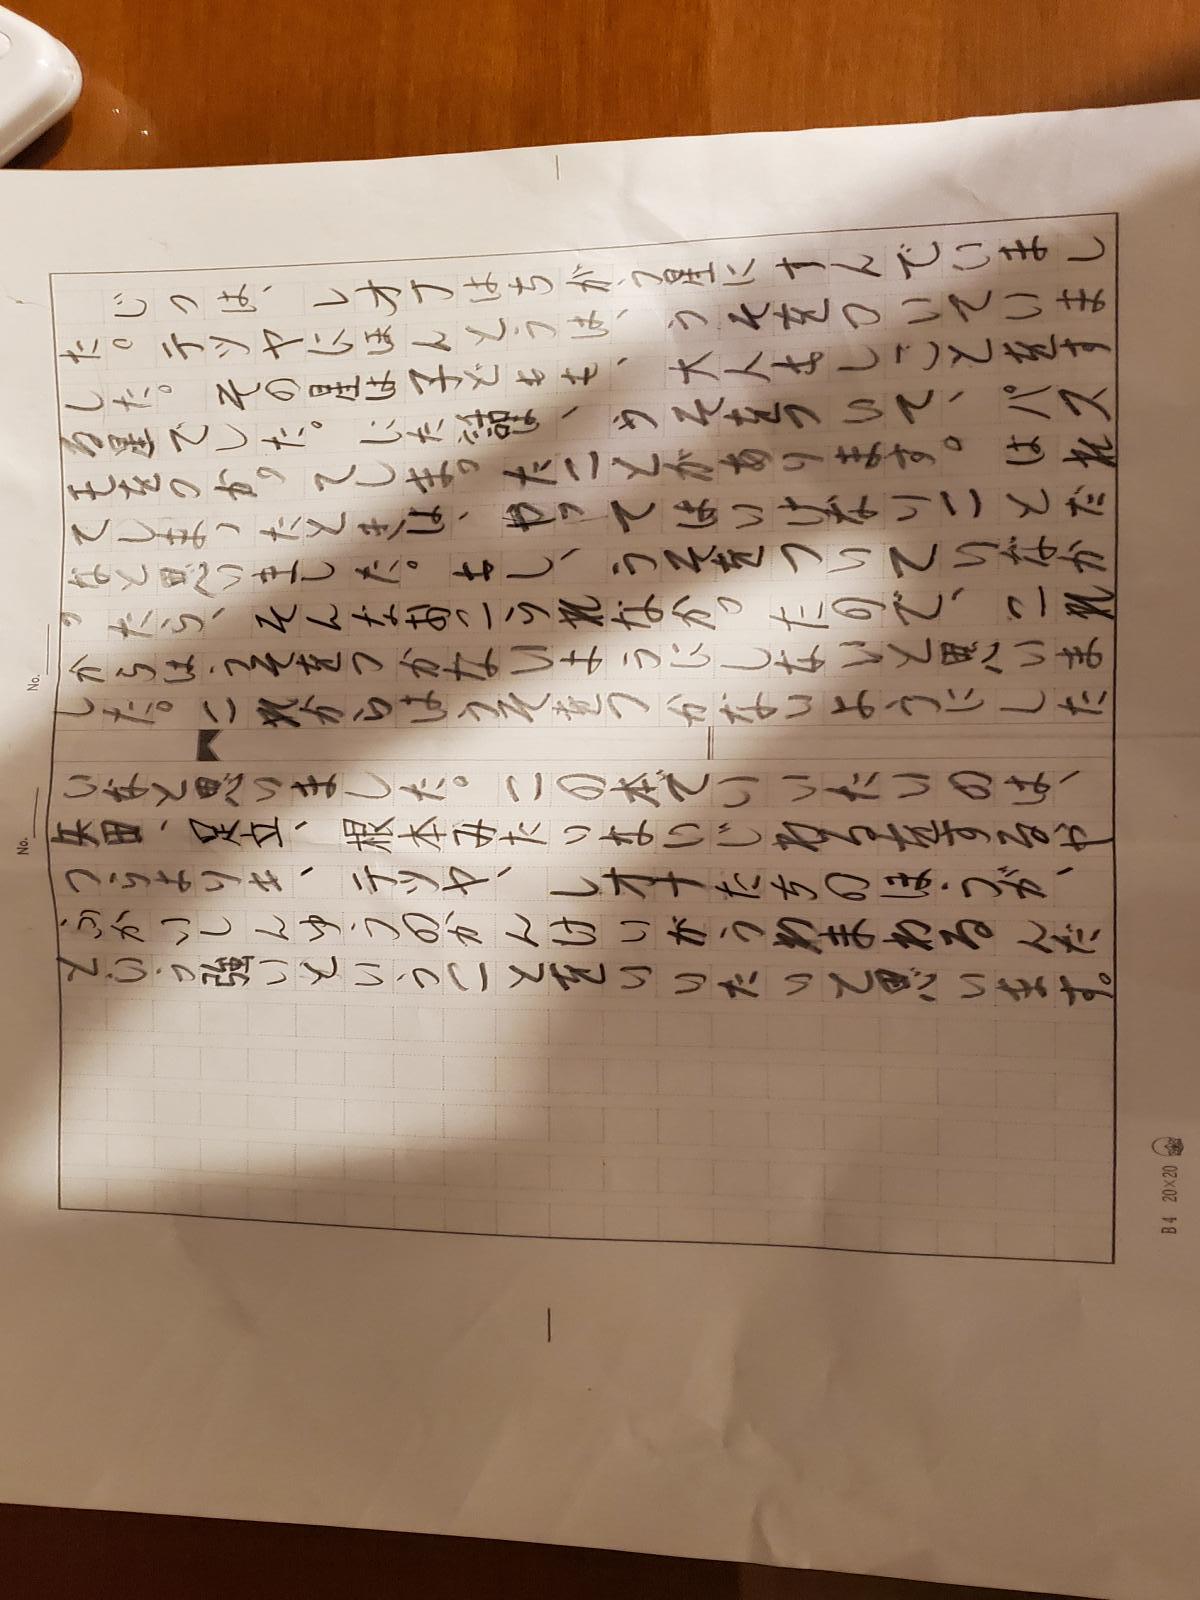 じつは、レオナはちがう星にすんでいまし
た。テツヤにほんとうは、うそをついていま
した。その星は子どもも、大人もしごとをす
る星でした。にた話は、うそをついて、パス
モをつかってしまったことがあります。はれ
てしまったときは、やってはいけないことだ
なと思いました。もし、うそをついていなか
ったら、そんなおこられなかったので、これ
からはうそをつかないようにしないと思いま
した。これからはうそをつかないようにした
いなと思いました。この本でいいたいのは、
矢田、足立、根本みたいないじわるをするや
つらよりも、テツヤ、レオナたちのほうが、
ふかいしんゆうのかんけいがうわまわるんだ
という強いということをいいたいて思います。
No.
No.
B4 20×20